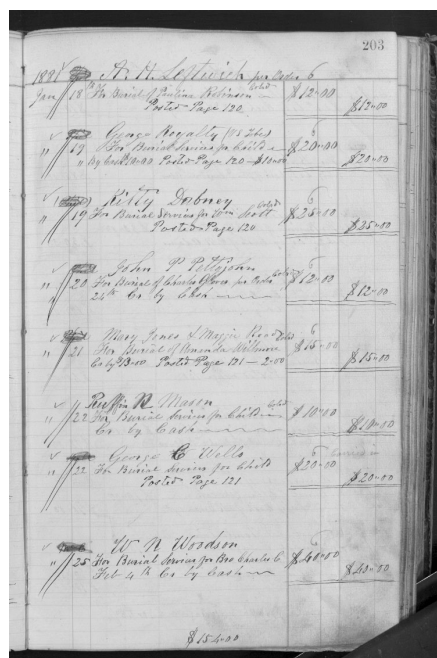 203
1891 A. H. Leftwich per Order 6
Jan 18 For Burial of Paulina Robinson Cold $12-00
Posted Page 120 $12-00
George Royalty
19 For Burial Services for Child $20-00
By Cash $10-00 Posted Page 120 - $10-00 $20-00
Kitty Dabney
19 For Burial Services for Wm. Scott Cold $25-00
Posted Page 120 $25-00
John P Pettyjohn
20 For Burial of Charles per Order $12-00
24th Cr by Cash $12-00
Mary Jones & Maggie Cold
21 For Burial of Amanda $15-00
Cr by $13-00 Posted Page 121 - 2-00 $15-00
Ruffin R Mason Cold
22 For Burial Services for Child $10-00
Cr by Cash $10-00
George C Wells
22 For Burial Services for Child $20-00
Posted Page 121 $20-00
W N Woodson
25 For Burial Services for Bro Charles C. $40-00
Feb 4th Cr by Cash $40-00
$154-00